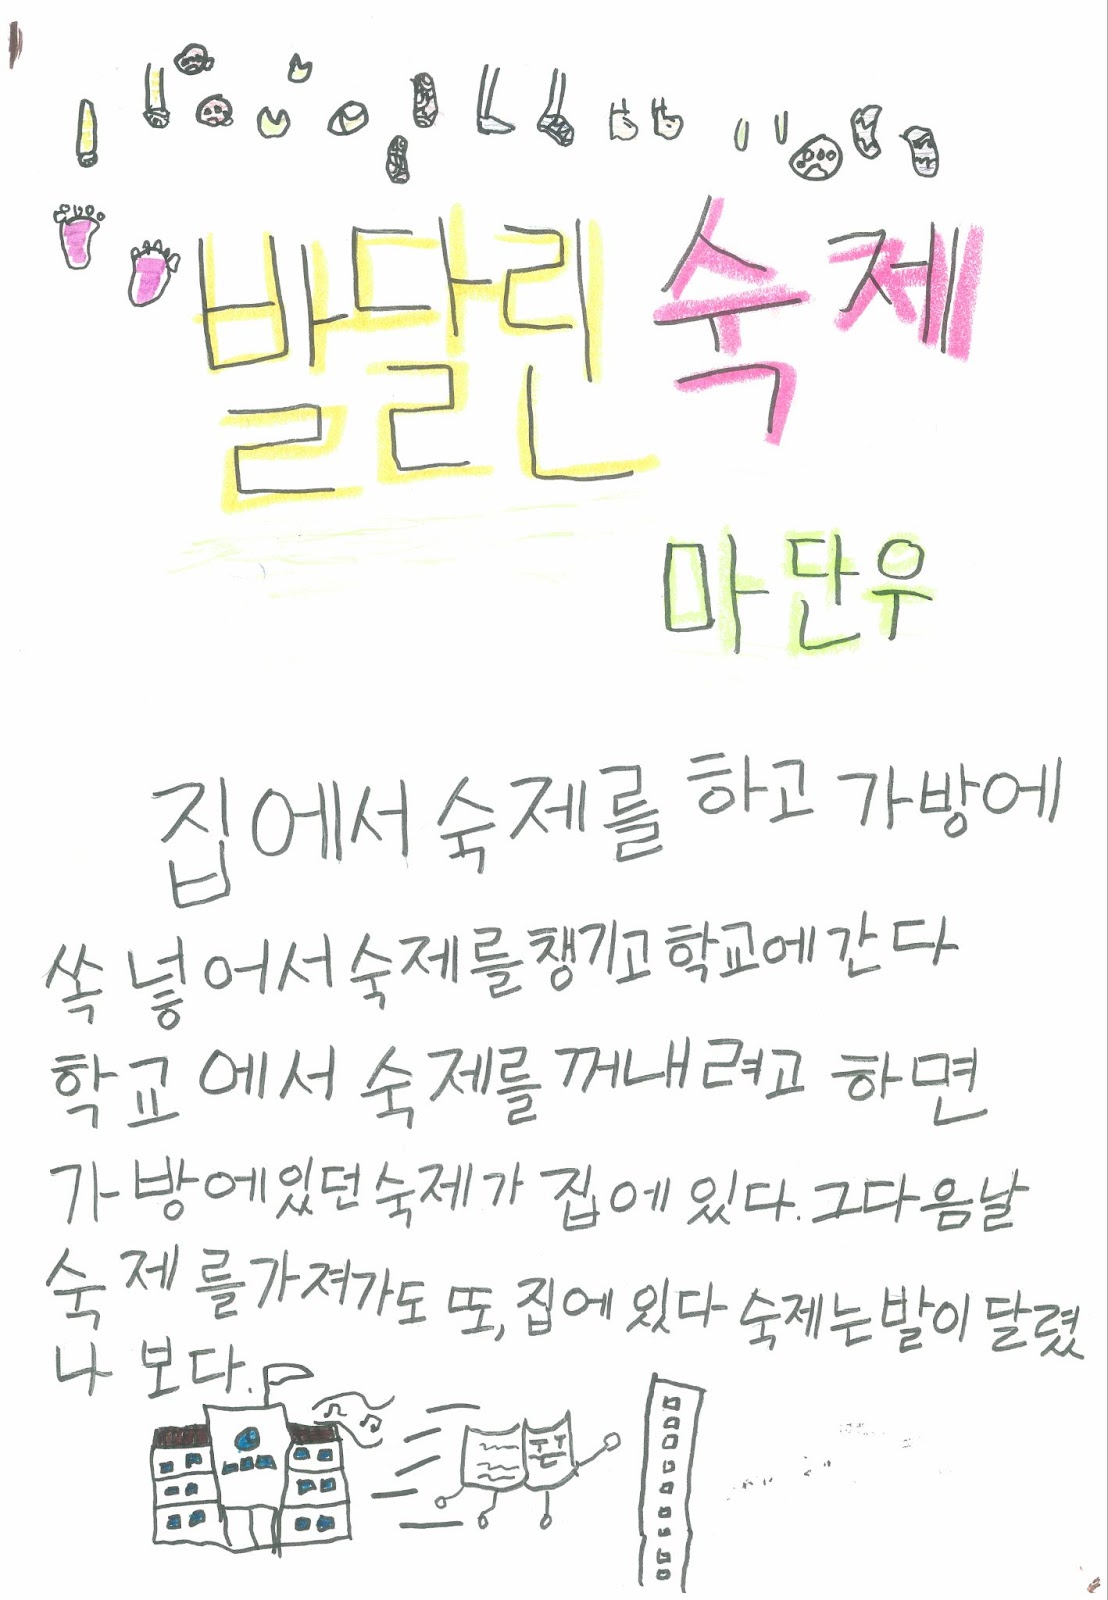 발달린 숙제
마단우
집에서 숙제를 하고 가방에
쏙 넣어서 숙제를 챙기고 학교에 간다
학교에서 숙제를 꺼내려고 하면
가방에 있던 숙제가 집에 있다. 그다음날
숙제를 가져가도 또, 집에 있다 숙제는 발이 달렸
나 보다.